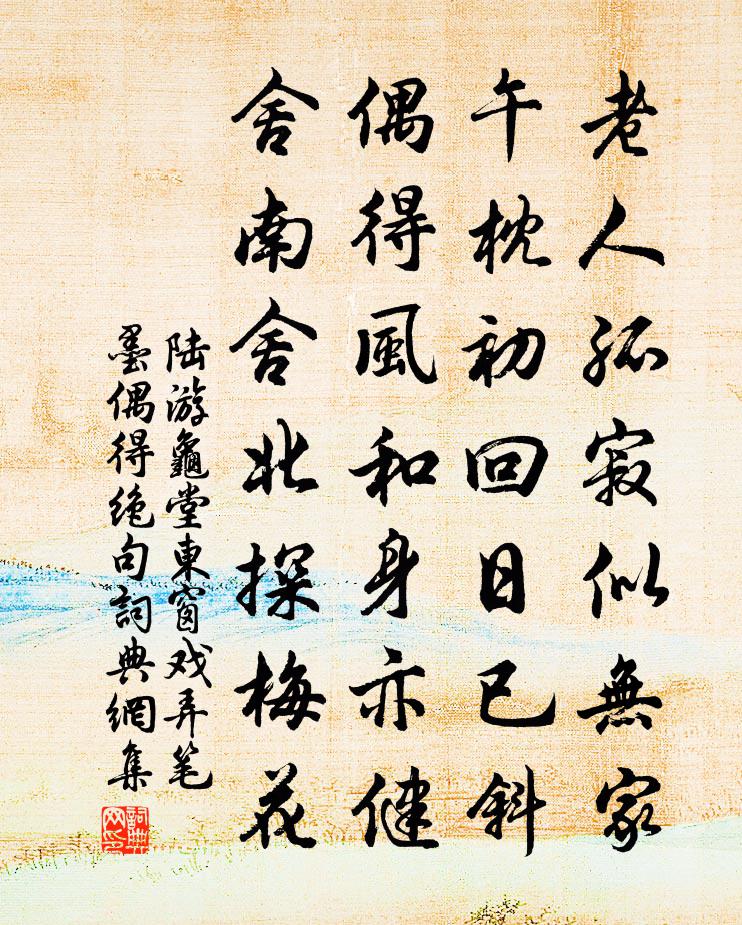 老人孤寂似無家
午枕初回日已斜
偶得風和身亦健
舍南舍北探梅花
陆游龜堂東窗戏弄笔
墨偶得绝句詞典網集
詞典网印